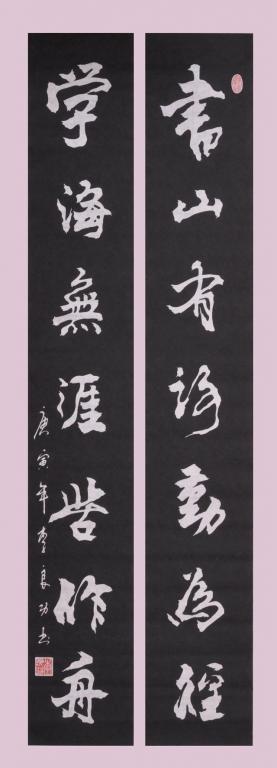 書山有路勤為徑
学海無涯苦作舟
庚寅年李良功书